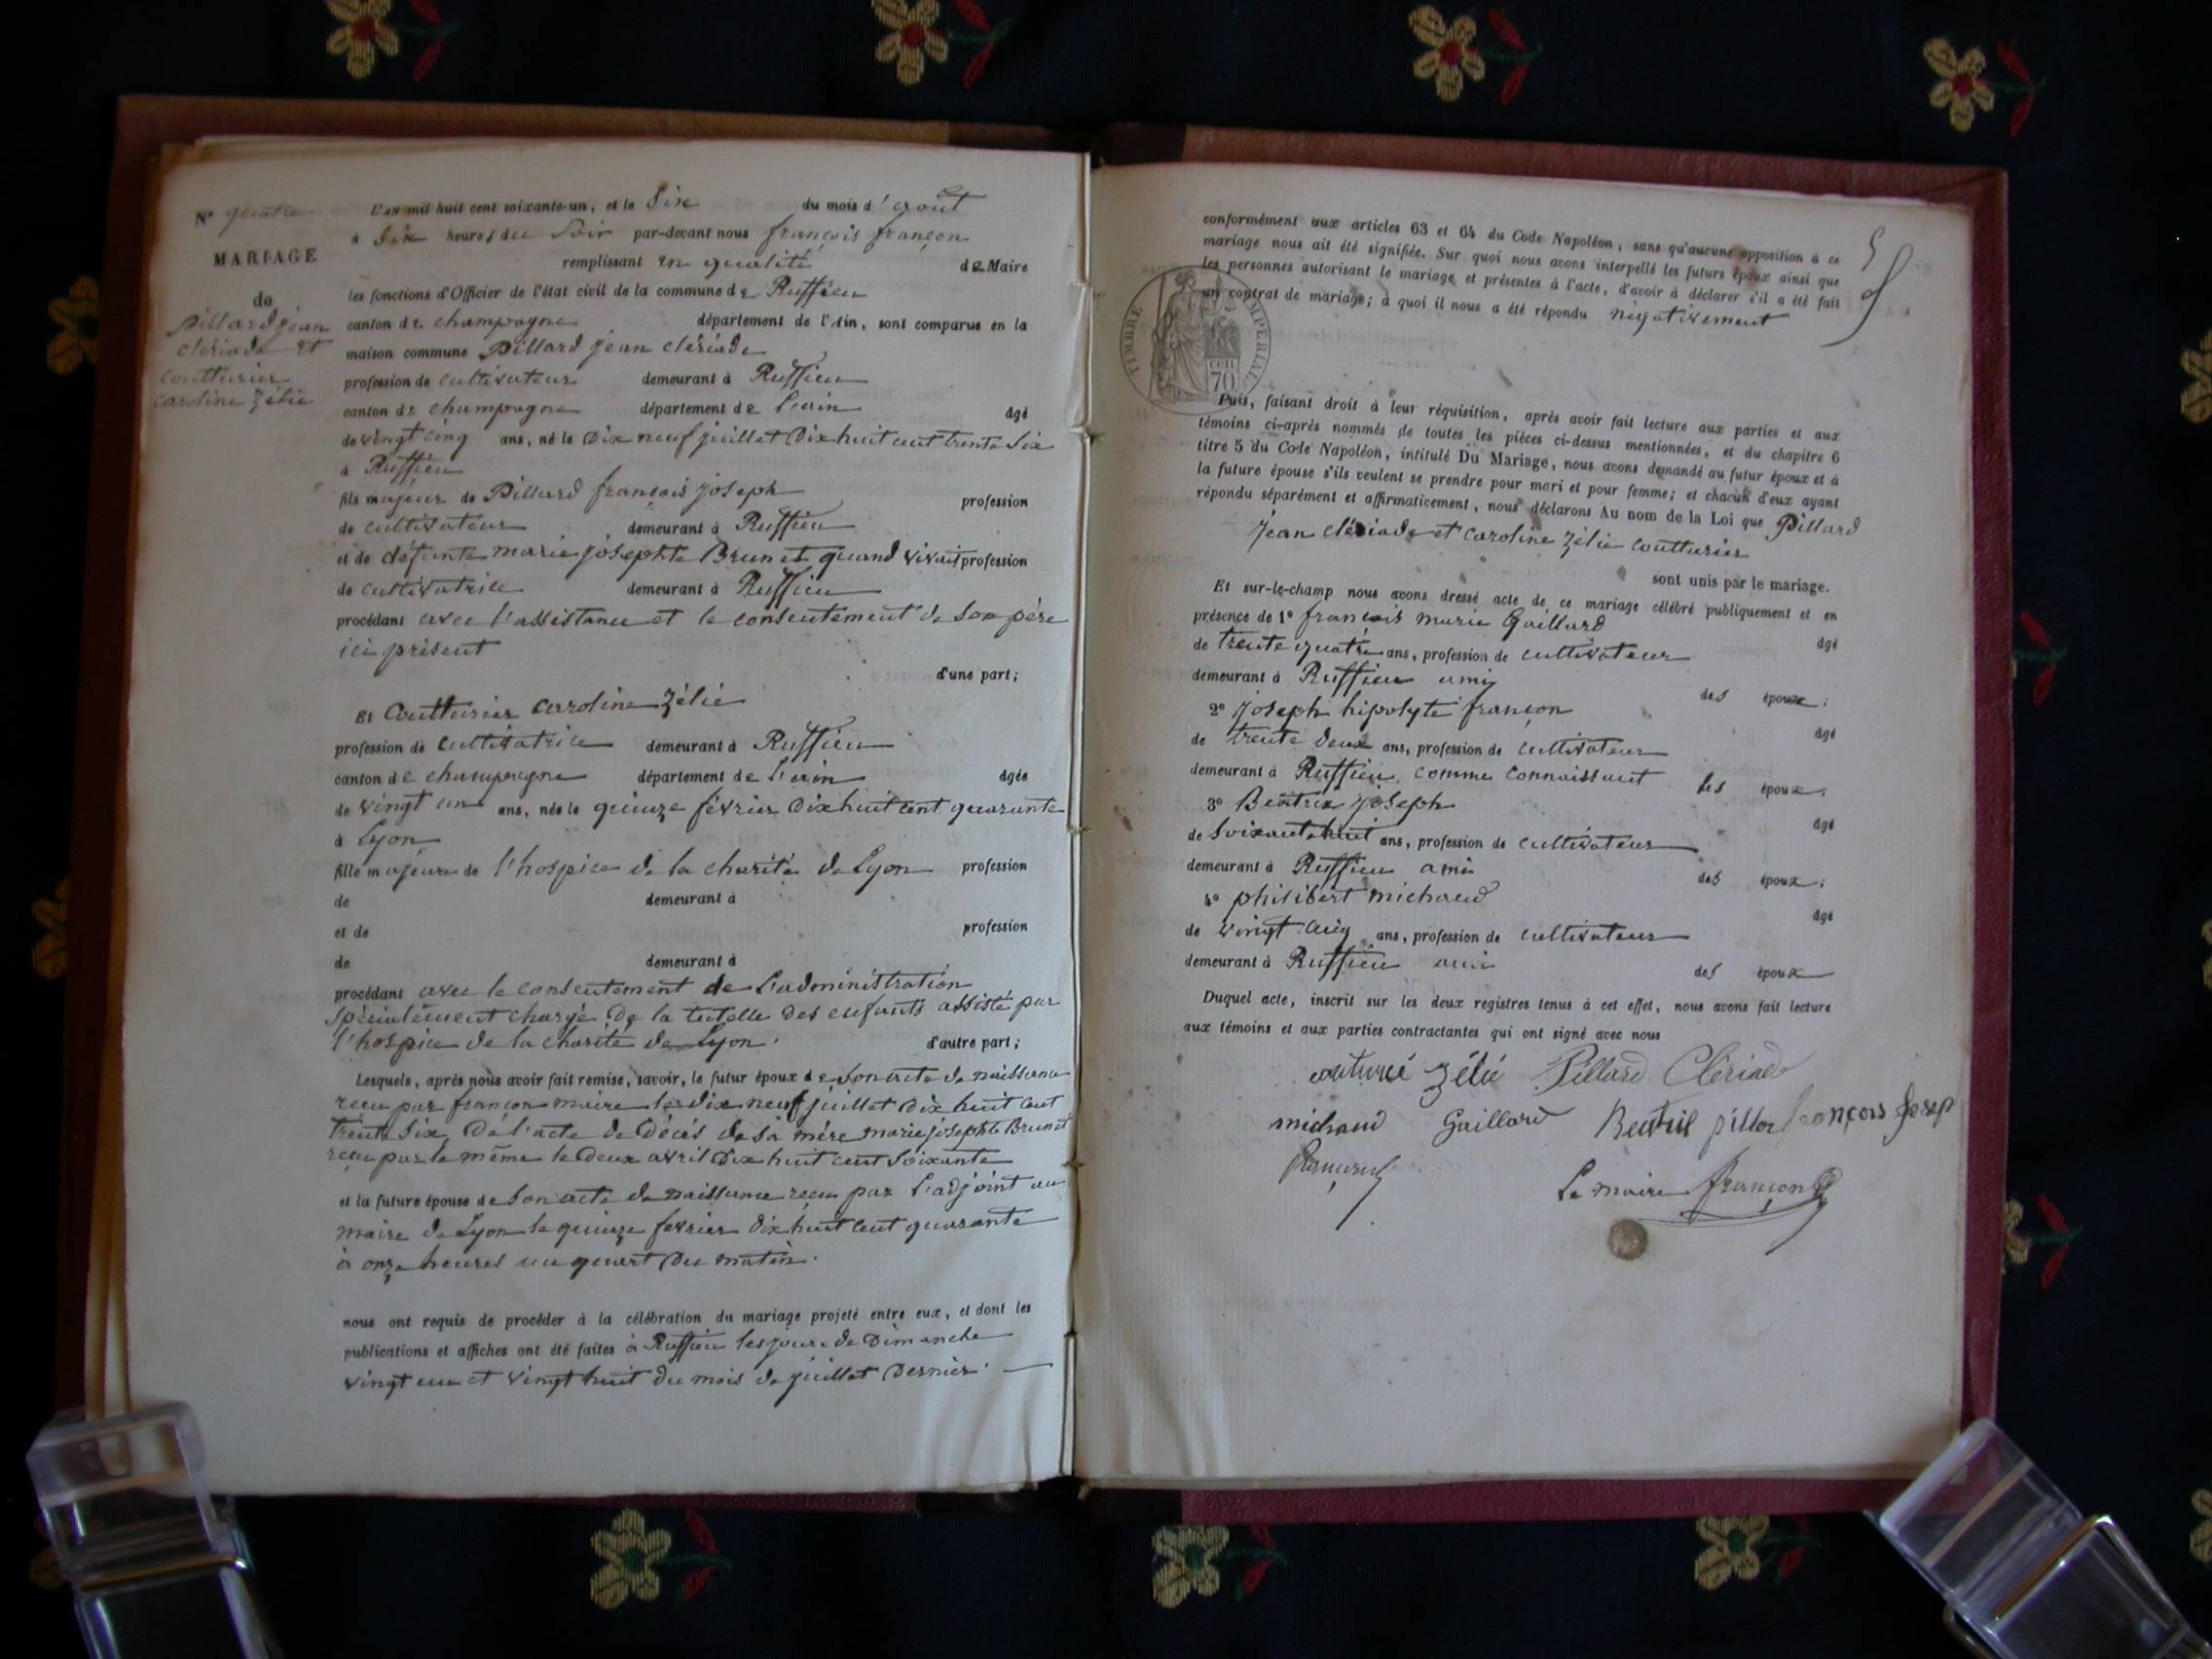 N° quatre
MARIAGE
de
pillard jean
clériade et
coutturier
caroline zélie
L'AN mil huit cent soixante-un, et le Six du mois d'août
à Six heures du Soir par-devant nous françois françon
remplissant en qualité de Maire
les fonctions d'Officier de l'état civil de la commune de Ruffieu
canton de champagne département de l'Ain, sont comparus en la
maison commune Pillard jean clériade
profession de cultivateur demeurant à Ruffieu
canton de champagne département de l'ain âgé
de vingt cinq ans, né le dix neuf juillet dix huit cent trente Six
à Ruffieu
fils majeur de Pillard françois joseph profession
de cultivateur demeurant à Ruffieu
et de défunte marie josephte Brunet quand vivait profession
de cultivatrice demeurant à Ruffieu
procédant avec l'assistance et le consentement de Son père
ici présent
d'une part;
Et Coutturier Caroline Zélie
profession de cultivatrice demeurant à Ruffieu
canton de champagne département de l'ain âgée
de vingt un ans, née le quinze février dix huit cent quarante
à Lyon
fille majeure de l'hospice de la charité de Lyon profession
de demeurant à
et de profession
de demeurant à
procédant avec le consentement de L'administration
Spécialement chargé de la tutelle des enfants assisté par
l'hospice de la charité de Lyon. d'autre part;
Lesquels, après nous avoir fait remise, savoir, le futur époux de Son acte de naissance
reçu par françon maire le dix neuf juillet dix huit cent
trente Six, De l'acte de Décès de Sa mère marie josephte Brunet
reçu par le même le deux avril dix huit cent Soixante
et la future épouse de Son acte de naissance reçu par L'adjoint au
maire de Lyon le quinze fevrier dix huit cent quarante
à onze heures un quart du matin.
nous ont requis de procéder à la célébration du mariage projeté entre eux, et dont les
publications et affiches ont été faites à Ruffieu les jours de Dimanche
vingt un et vingt huit du mois de juillet dernier.
5
conformément aux articles 63 et 64 du Code Napoléon, sans qu'aucune opposition à ce
mariage nous ait été signifiée. Sur quoi nous avons interpellé les futurs époux ainsi que
les personnes autorisant le mariage et présentes à l'acte, d'avoir à déclarer s'il a été fait
un contrat de mariage; à quoi il nous a été répondu négativement
TIMBRE IMPERIAL
cen
70
Puis, faisant droit à leur réquisition, après avoir fait lecture aux parties et aux
témoins ci-après nommés de toutes les pièces ci-dessus mentionnées, et du chapitre 6
titre 5 du Code Napoléon, intitulé Du Mariage, nous avons demandé au futur époux et à
la future épouse s'ils veulent se prendre pour mari et pour femme; et chacun d'eux ayant
répondu séparément et affirmativement, nous déclarons Au nom de la Loi que Pillard
jean clériade et caroline zélie coutturier
sont unis par le mariage.
Et sur-le-champ nous avons dressé acte de ce mariage célébré publiquement et en
présence de 1° françois marie Gaillard
âgé
de trente quatre ans, profession de cultivateur
demeurant à Ruffieu ami des époux;
2° joseph hipolyte françon
âgé
de trente deux ans, profession de cultivateur
demeurant à Ruffieu, comme connaissant les époux;
3° Béatrix joseph
âgé
de Soixante huit ans, profession de cultivateur
demeurant à Ruffieu ami des époux;
4° philibert michaud
âgé
de vingt cinq ans, profession de cultivateur
demeurant à Ruffieu ami des époux
Duquel acte, inscrit sur les deux registres tenus à cet effet, nous avons fait lecture
aux témoins et aux parties contractantes qui ont signé avec nous
zélié Pillard Clériade
michaud Gaillard pillard françois Josep
Le maire françon